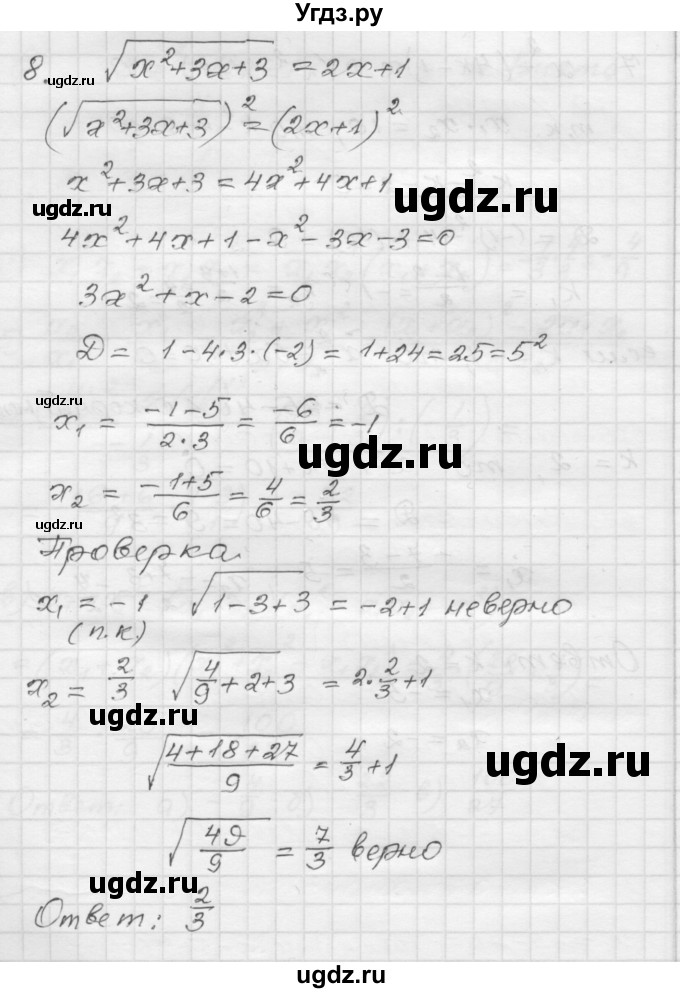 Угдз.ру
8 √(x²+3x+3) = 2x+1
ugdz.ru
(√(x²+3x+3))² = (2x+1)²
x²+3x+3 = 4x²+4x+1
ugdz.ru
ugdz.ru
4x²+4x+1-x²-3x-3=0
3x²+x-2=0
D = 1-4·3·(-2) = 1+24=25=5²
ugdz.ru
x₁ = (-1-5)/(2·3) = -6/6 = -1
ugdz.ru
x₂ = (-1+5)/6 = 4/6 = 2/3
ugdz.ru
Проверка
x₁ = -1 √(1-3+3) = -2+1 неверно
(п.к)
x₂ = 2/3 √(4/9+2+3) = 2·2/3+1
ugdz.ru
√((4+18+27)/9) = 4/3+1
ugdz.ru
√(49/9) = 7/3 верно
ugdz.ru
Ответ: 2/3
ugdz.ru